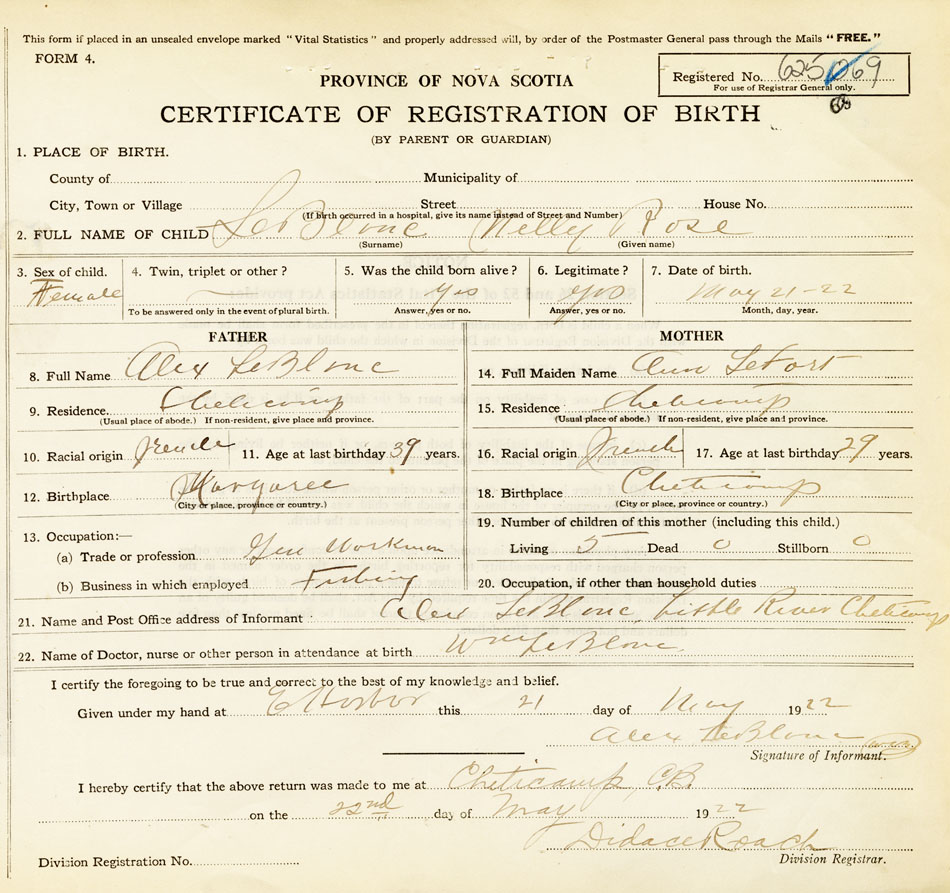 This form if placed in an unsealed envelope marked "Vital Statistics" and properly addressed will, by order of the Postmaster General pass through the Mails "FREE."
FORM 4.
PROVINCE OF NOVA SCOTIA
Registered No. 625 069
For use of Registrar General only.
CERTIFICATE OF REGISTRATION OF BIRTH
(BY PARENT OR GUARDIAN)
1. PLACE OF BIRTH.
County of Municipality of
City, Town or Village Street House No.
(If birth occurred in a hospital, give its name instead of Street and Number)
2. FULL NAME OF CHILD LeBlanc Nelly Rose
(Surname) (Given name)
3. Sex of child. 4. Twin, triplet or other? 5. Was the child born alive? 6. Legitimate? 7. Date of birth.
Female Yes Yes May 21-22
To be answered only in the event of plural birth. Answer, yes or no. Answer, yes or no. Month, day, year.
FATHER MOTHER
8. Full Name Alex LeBlanc 14. Full Maiden Name Ann LeFort
9. Residence. Cheticamp 15. Residence Cheticamp
(Usual place of abode.) If non-resident, give place and province. (Usual place of abode.) If non-resident, give place and province.
10. Racial origin French 11. Age at last birthday 39 years. 16. Racial origin French 17. Age at last birthday 29 years.
12. Birthplace Margaree 18. Birthplace Cheticamp
(City or place, province or country.) (City or place, province or country.)
13. Occupation:— 19. Number of children of this mother (including this child.)
(a) Trade or profession Gen Workman Living 5 Dead 0 Stillborn 0
(b) Business in which employed Fishing 20. Occupation, if other than household duties
21. Name and Post Office address of Informant Alex LeBlanc, Little River Cheticamp
22. Name of Doctor, nurse or other person in attendance at birth Wm LeBlanc.
I certify the foregoing to be true and correct to the best of my knowledge and belief.
Given under my hand at E Harbor this 21 day of May 1922
Alex LeBlanc
Signature of Informant.
I hereby certify that the above return was made to me at Cheticamp, C.B.
on the 22nd day of May 1922
Didace Roach
Division Registration No. Division Registrar.